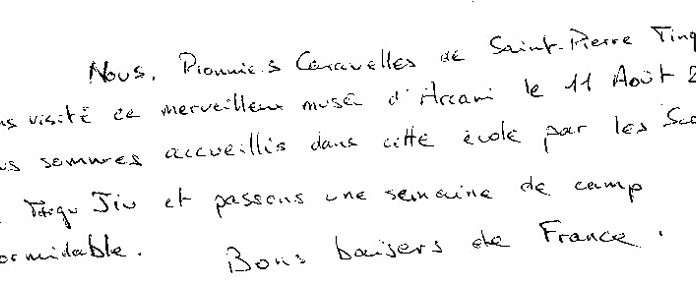 Nous, Pionniers Caravelles de Saint-Pierre Tinq
ns visité ce merveilleux musée d'Arcani le 11 Août 2
us sommes accueillis dans cette école par les Sco
Târgu Jiu et passons une semaine de camp
ormidable. Bons baisers de France.